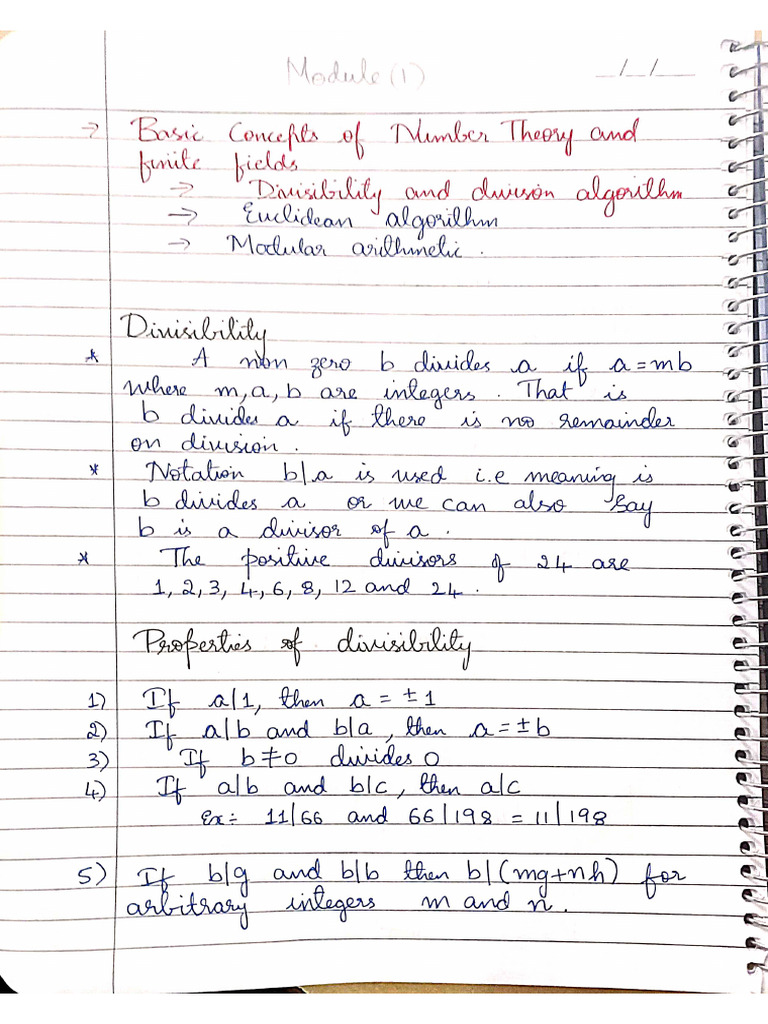 Module (1)
_/_/_
→ Basic Concepts of Number Theory and
finite fields
→ Divisibility and divison algorithm
→ Euclidean algorithm
→ Modular arithmetic.
Divisibility
* A non zero b divides a if a=mb
where m, a, b are integers. That is
b divides a if there is no remainder
on division.
* Notation b|a is used i.e meaning is
b divides a or we can also say
b is a divisor of a.
* The positive divisors of 24 are
1, 2, 3, 4, 6, 8, 12 and 24.
Properties of divisibility
1) If a|1, then a = ±1
2) If a|b and b|a, then a=±b
3) If b≠0 divides 0
4) If a|b and b|c, then a|c
Ex:- 11|66 and 66|198 = 11|198
5) If b|g and b|b then b|(mg+nh) for
arbitrary integers m and n.